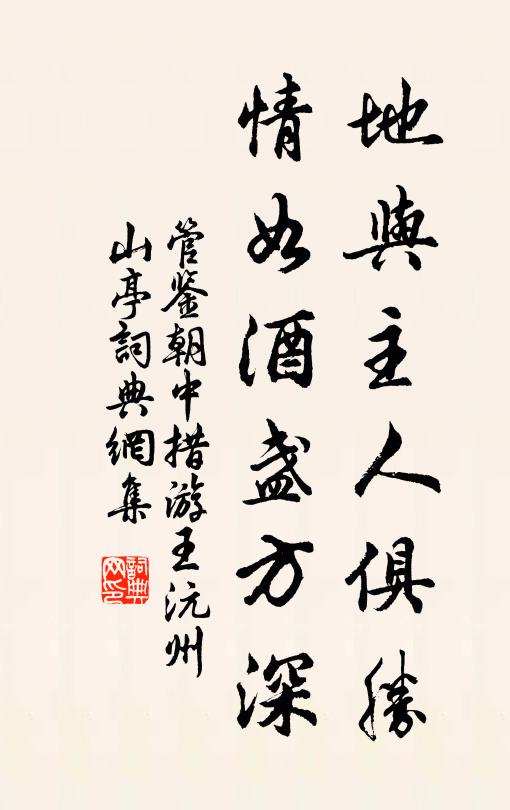 地與主人俱勝
情如酒盞方深
管鉴朝中措游王沅州
山亭詞典網集
詞典网印